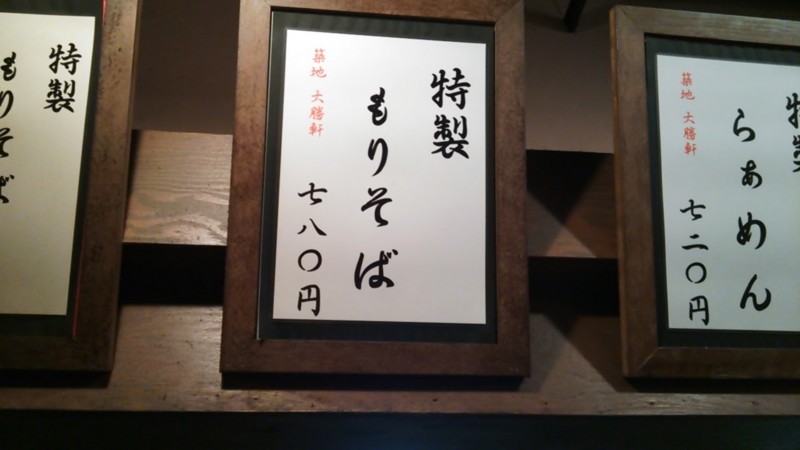 特製
らぁめん
七二〇円
築地 大勝軒
特製
もりそば
七八〇円
築地 大勝軒
特製
もりそば